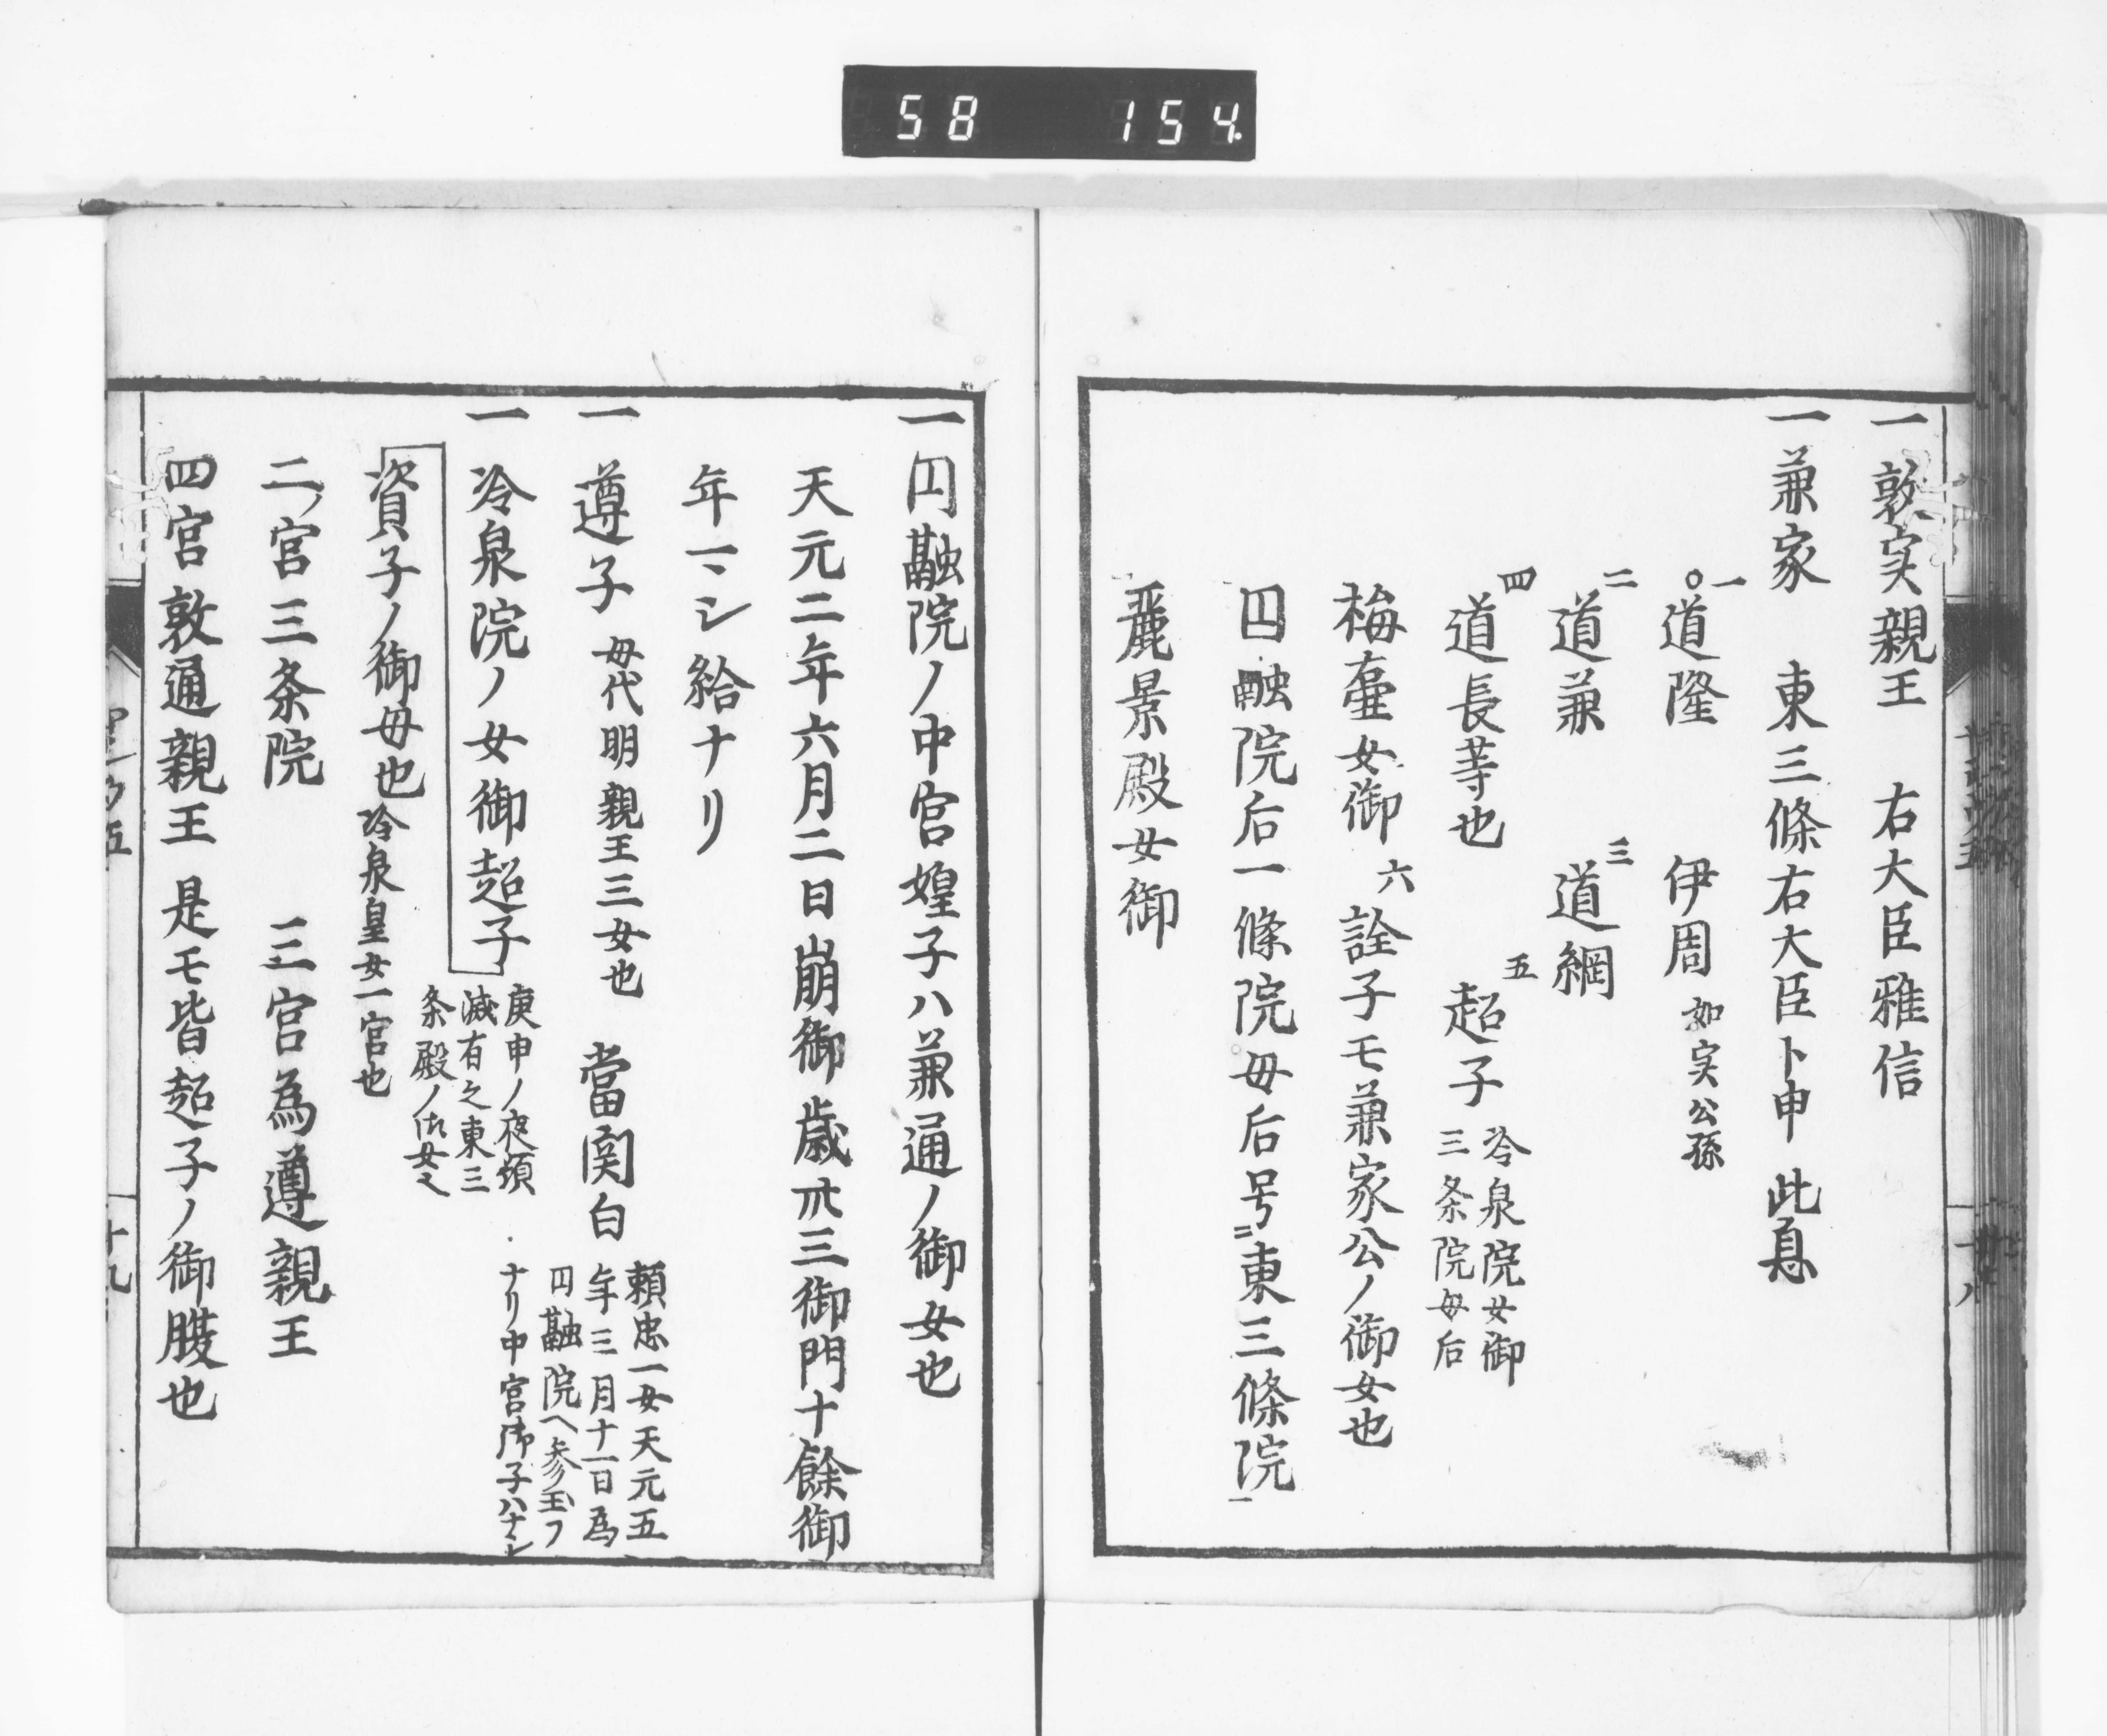 58 154
一敦実親王 右大臣雅信
一兼家 東三條右大臣ト申 此息
一〇道隆 伊周 如実公孫
二道兼 三道綱
四道長䒭也 五超子 冷泉院女御
三条院母后
梅壷女御 六詮子モ兼家公ノ御女也
円融院后一條院母后号ニ東三條院一
麗景殿女御
一円融院ノ中宮媓子ハ兼通ノ御女也
天元二年六月二日崩御歳卅三御門十餘御
年一ヽシ給ナリ
一遵子 母代明親王三女也 當関白 頼忠一女天元五
年三月十一日為
円融院ヘ参玉フ
ナリ中宮御子ハナシ
一冷泉院ノ女御超子 庚申ノ夜頓
滅有之東三
条殿ノ御女也
資子ノ御母也 冷泉皇女一宮也
二ノ宮三条院 三宮為遵親王
四宮敦通親王是モ皆超子ノ御腹也
十九